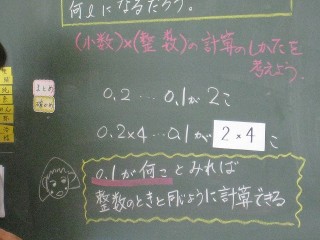 何ℓになるだろう。
(小数)×(整数)の計算のしかたを
考えよう。
0.2…0.1が2こ
0.2×4…0.1が 2×4 こ
まとめ
0.1が何ことみれば
整数のときと同じように計算できる